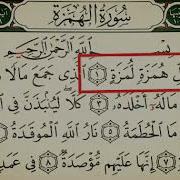 سُورَةُ الْهُمَزَةِ
بِسْمِ اللَّهِ الرَّحْمَٰنِ الرَّحِيمِ
هُمَزَةٍ لُّمَزَةٍ ١ الَّذِي جَمَعَ مَالًا
مَالَهُ أَخْلَدَهُ ٣ كَلَّا لَيُنْبَذَنَّ
مَا الْحُطَمَةُ ٥ نَارُ اللَّهِ الْمُوقَدَةُ ٦
٧ إِنَّهَا عَلَيْهِم مُّؤْصَدَةٌ ٨ فِي